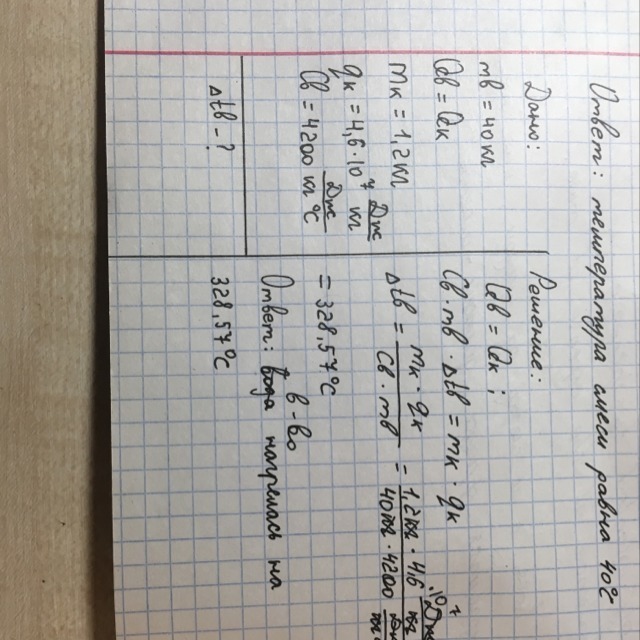 Ответ: температура смеси равна 40°C
Дано:
mв = 40кг
Qв = Qк
mк = 1,2кг
qк = 4,6·10⁷ Дж/кг
Cв = 4200 Дж/кг °C
Δtв - ?
Решение:
Qв = Qк ;
Cв·mв·Δtв = mк·qк
Δtв = mк·qк / Cв·mв = 1,2кг·4,6·10⁷ Дж/кг / 40кг·4200 Дж/кг
= 328,57°C
в-во
Ответ: вода нагрелась на
328,57°C